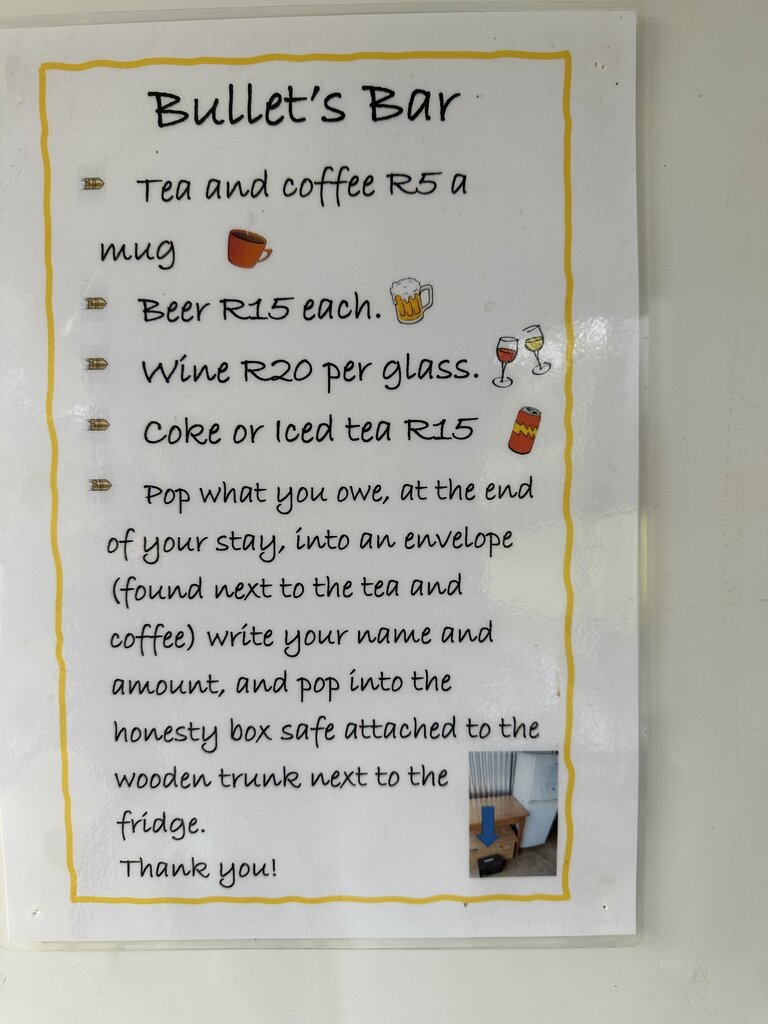 Bullet's Bar
Tea and coffee R5 a
mug
Beer R15 each.
Wine R20 per glass.
Coke or Iced tea R15
Pop what you owe, at the end
of your stay, into an envelope
(found next to the tea and
coffee) write your name and
amount, and pop into the
honesty box safe attached to the
wooden trunk next to the
fridge.
Thank you!